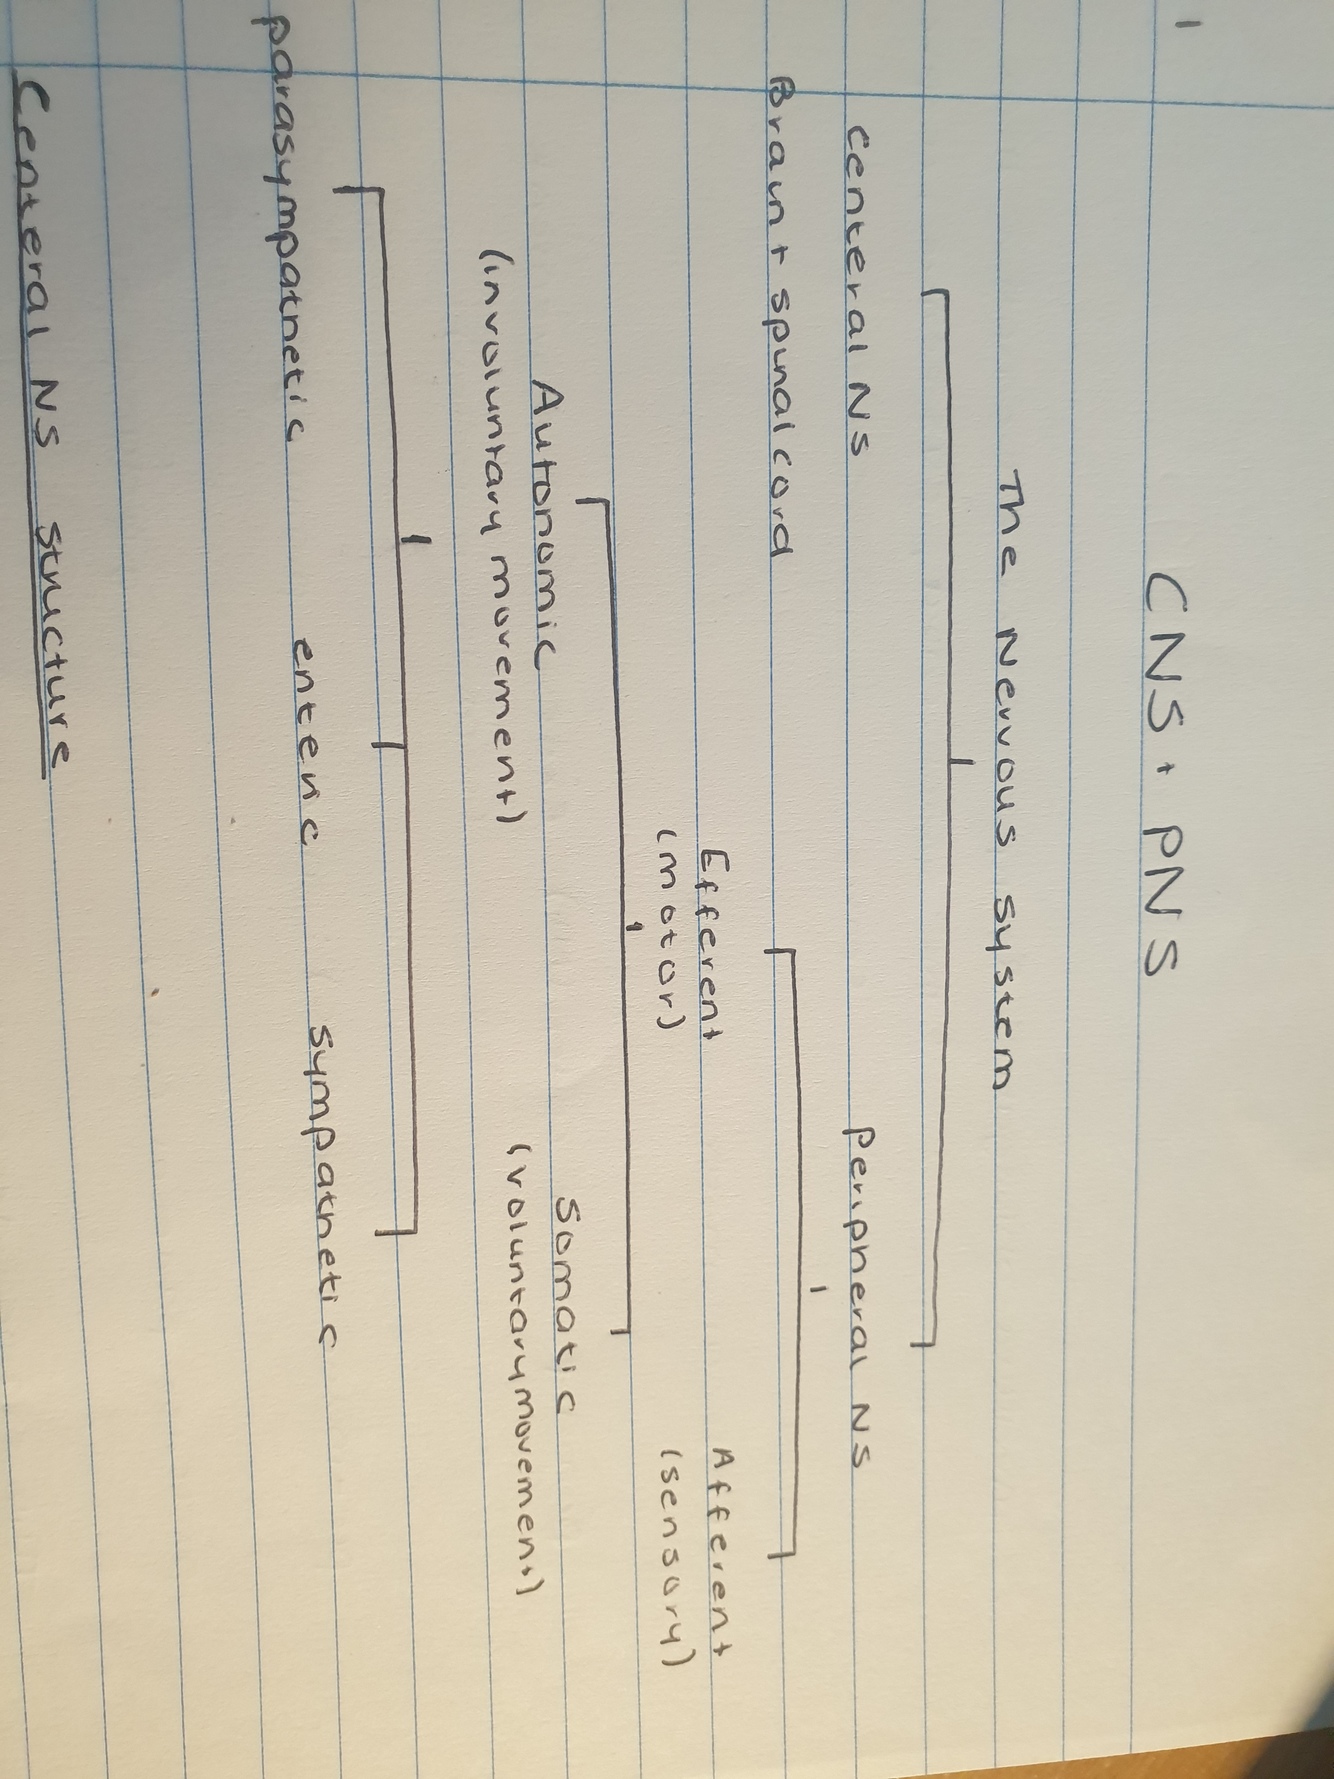 CNS + PNS
The Nervous System
Centeral NS Peripheral NS
Brain + spinal cord
Efferent Afferent
(motor) (sensory)
Autonomic Somatic
(involuntary movement) (voluntary movement)
parasympathetic enteric sympathetic
Centeral NS structure